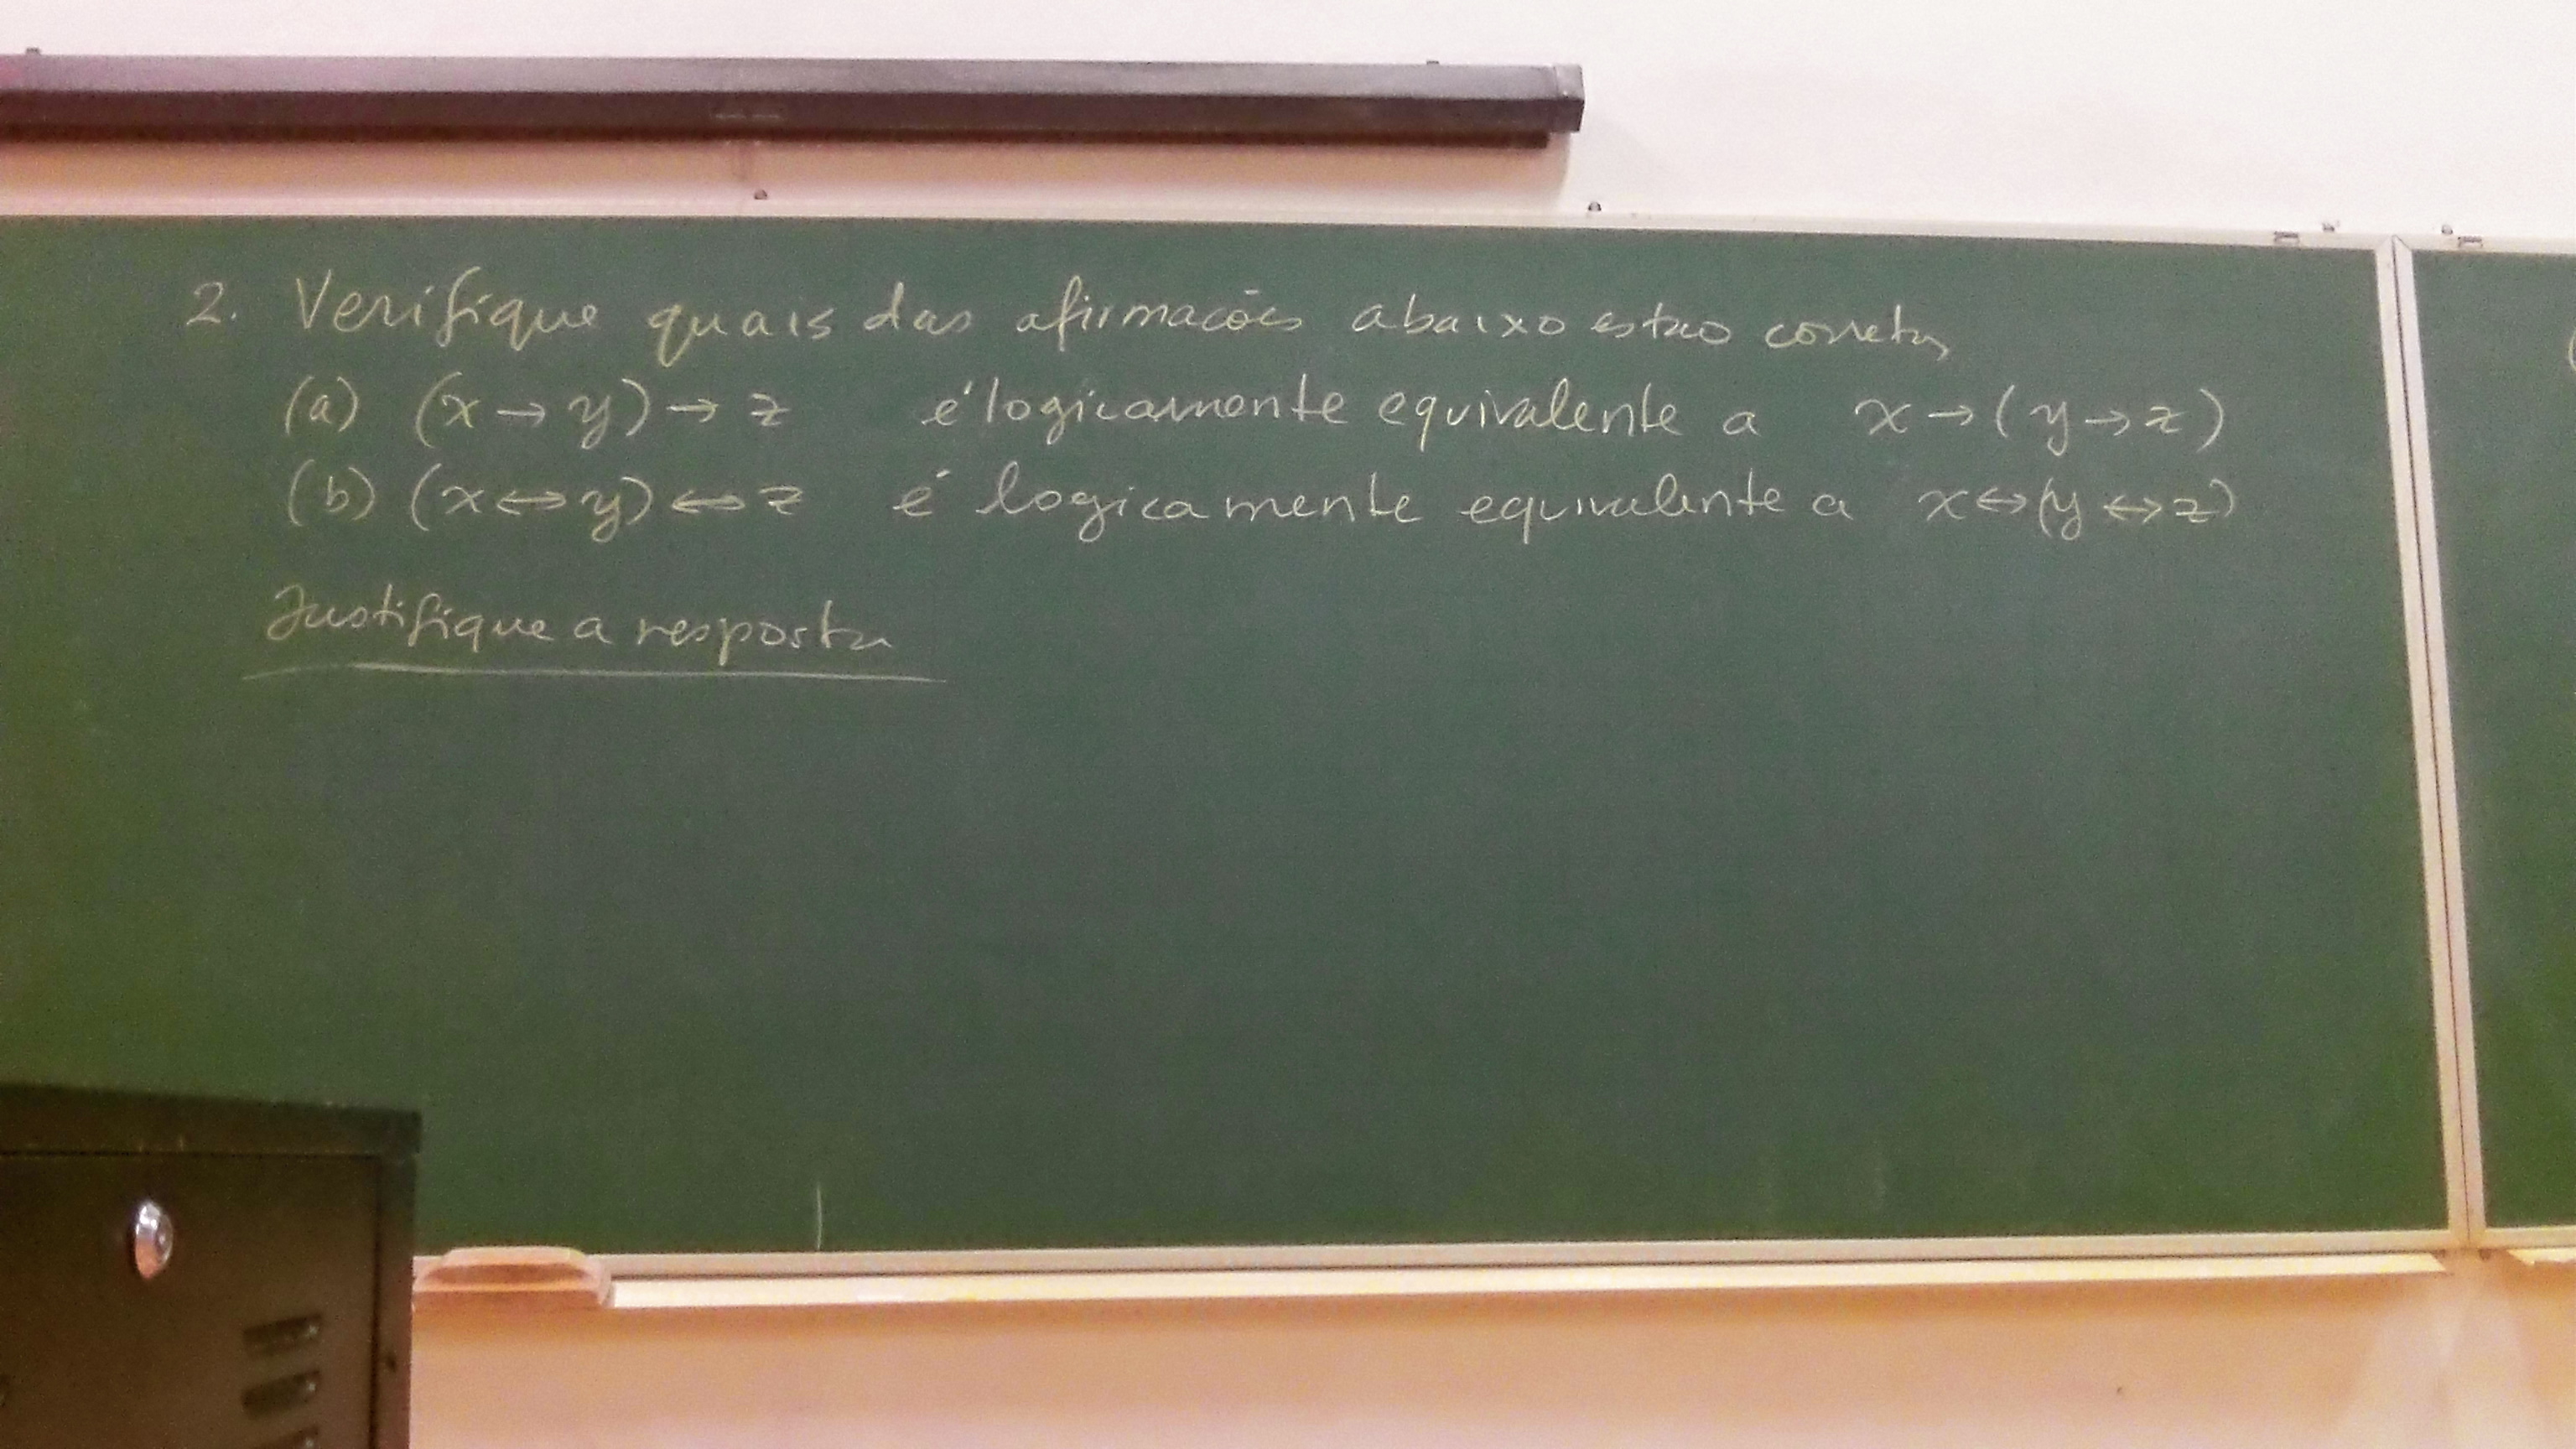 2. Verifique quais das afirmacões abaixo estao corretas
(a) (x → y) → z é logicamente equivalente a x → (y → z)
(b) (x ↔ y) ↔ z é logicamente equivalente a x ↔ (y ↔ z)
Justifique a resposta